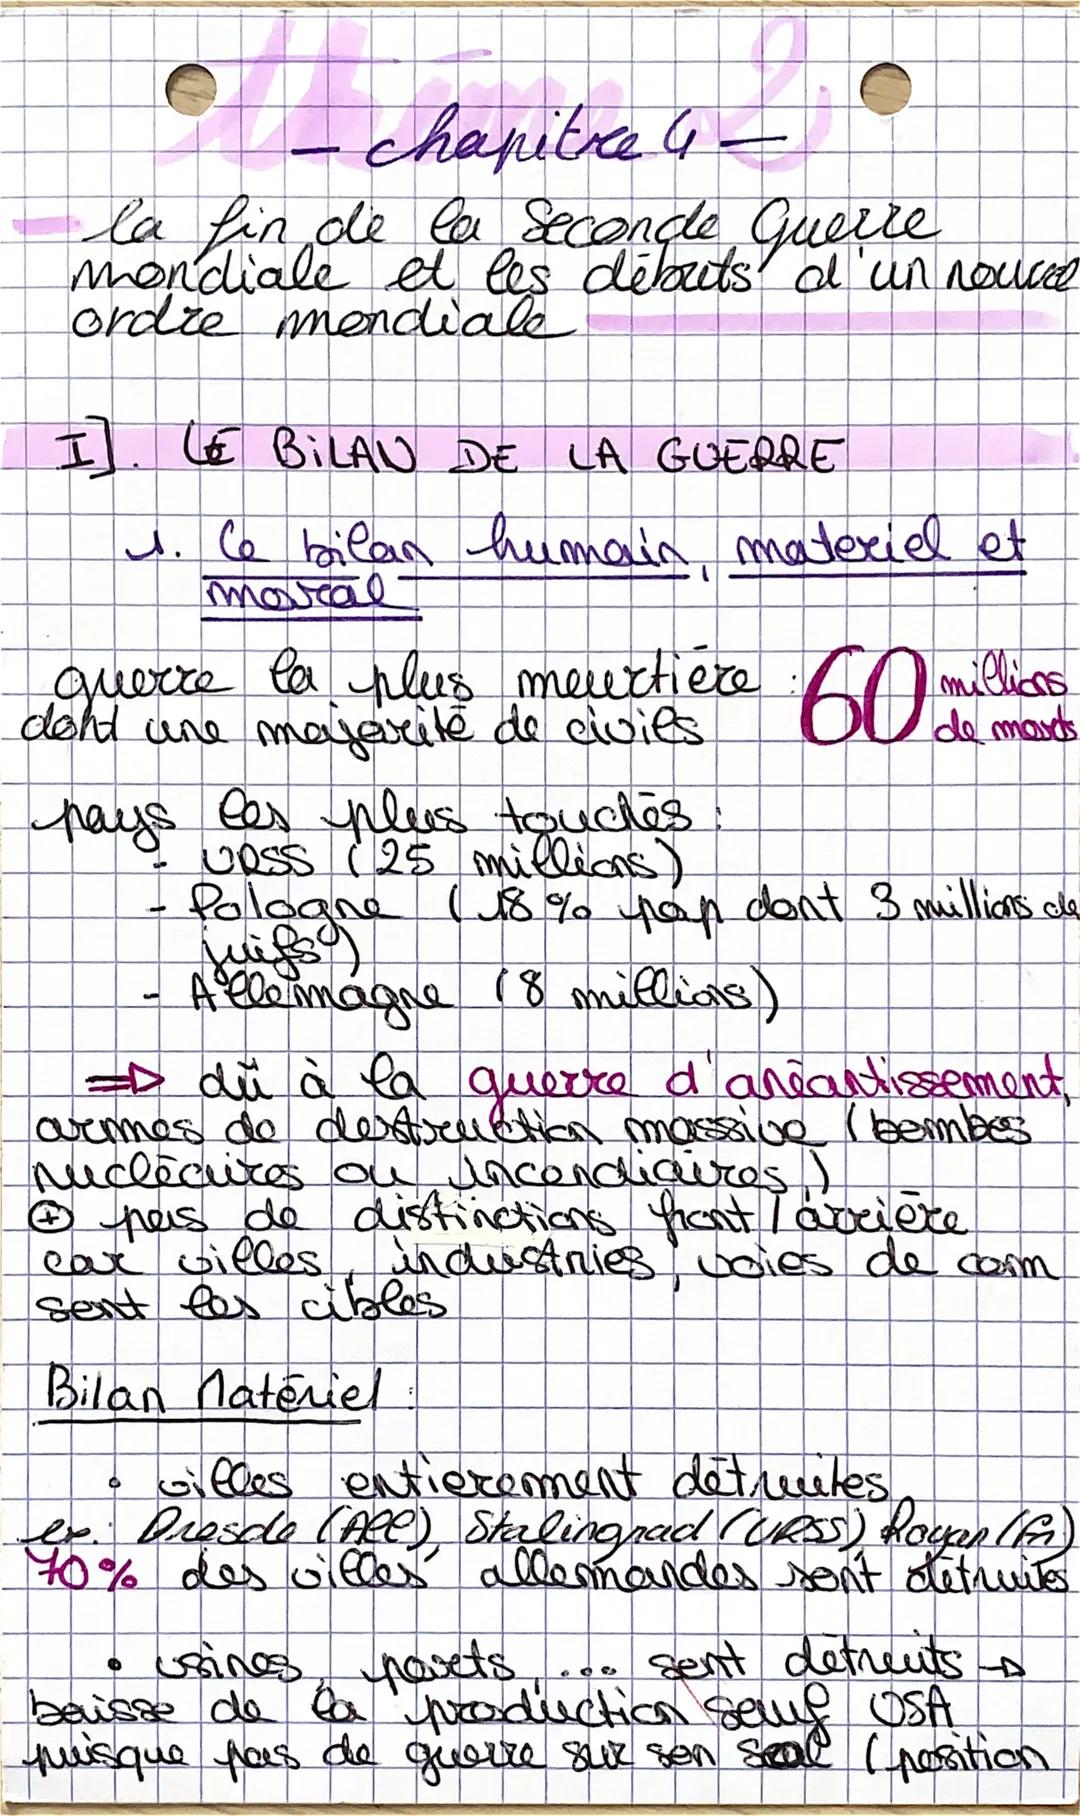 thème 2
- chapitre 4 -
la fin de la Seconde Guerre
mondiale et les débuts d'un nouvel
ordre mondiale
I]. LE BILAN DE LA GUERRE
1. Le bilan humain, materiel et
moral
guerre la plus meurtière : 60 millions
dont une majorité de civils de morts
pays les plus touchés :
- URSS (25 millions)
- Pologne (18% pop dont 3 millions de
juifs)
- Allemagne (8 millions)
⇒ dû à la guerre d'anéantissement,
armes de destruction massive (bombes
nucléaires ou incendiaires)
⊕ pas de distinctions front/arrière
car villes, industries, voies de com
sont les cibles
Bilan Matériel :
• villes entierement détruites
ex: Dresde (All), Stalingrad (URSS), Royan (Fr)
70% des villes allemandes sont détruites
• usines, ports, ... sont détruits →
baisse de la production sauf USA
puisque pas de guerre sur son sol (position